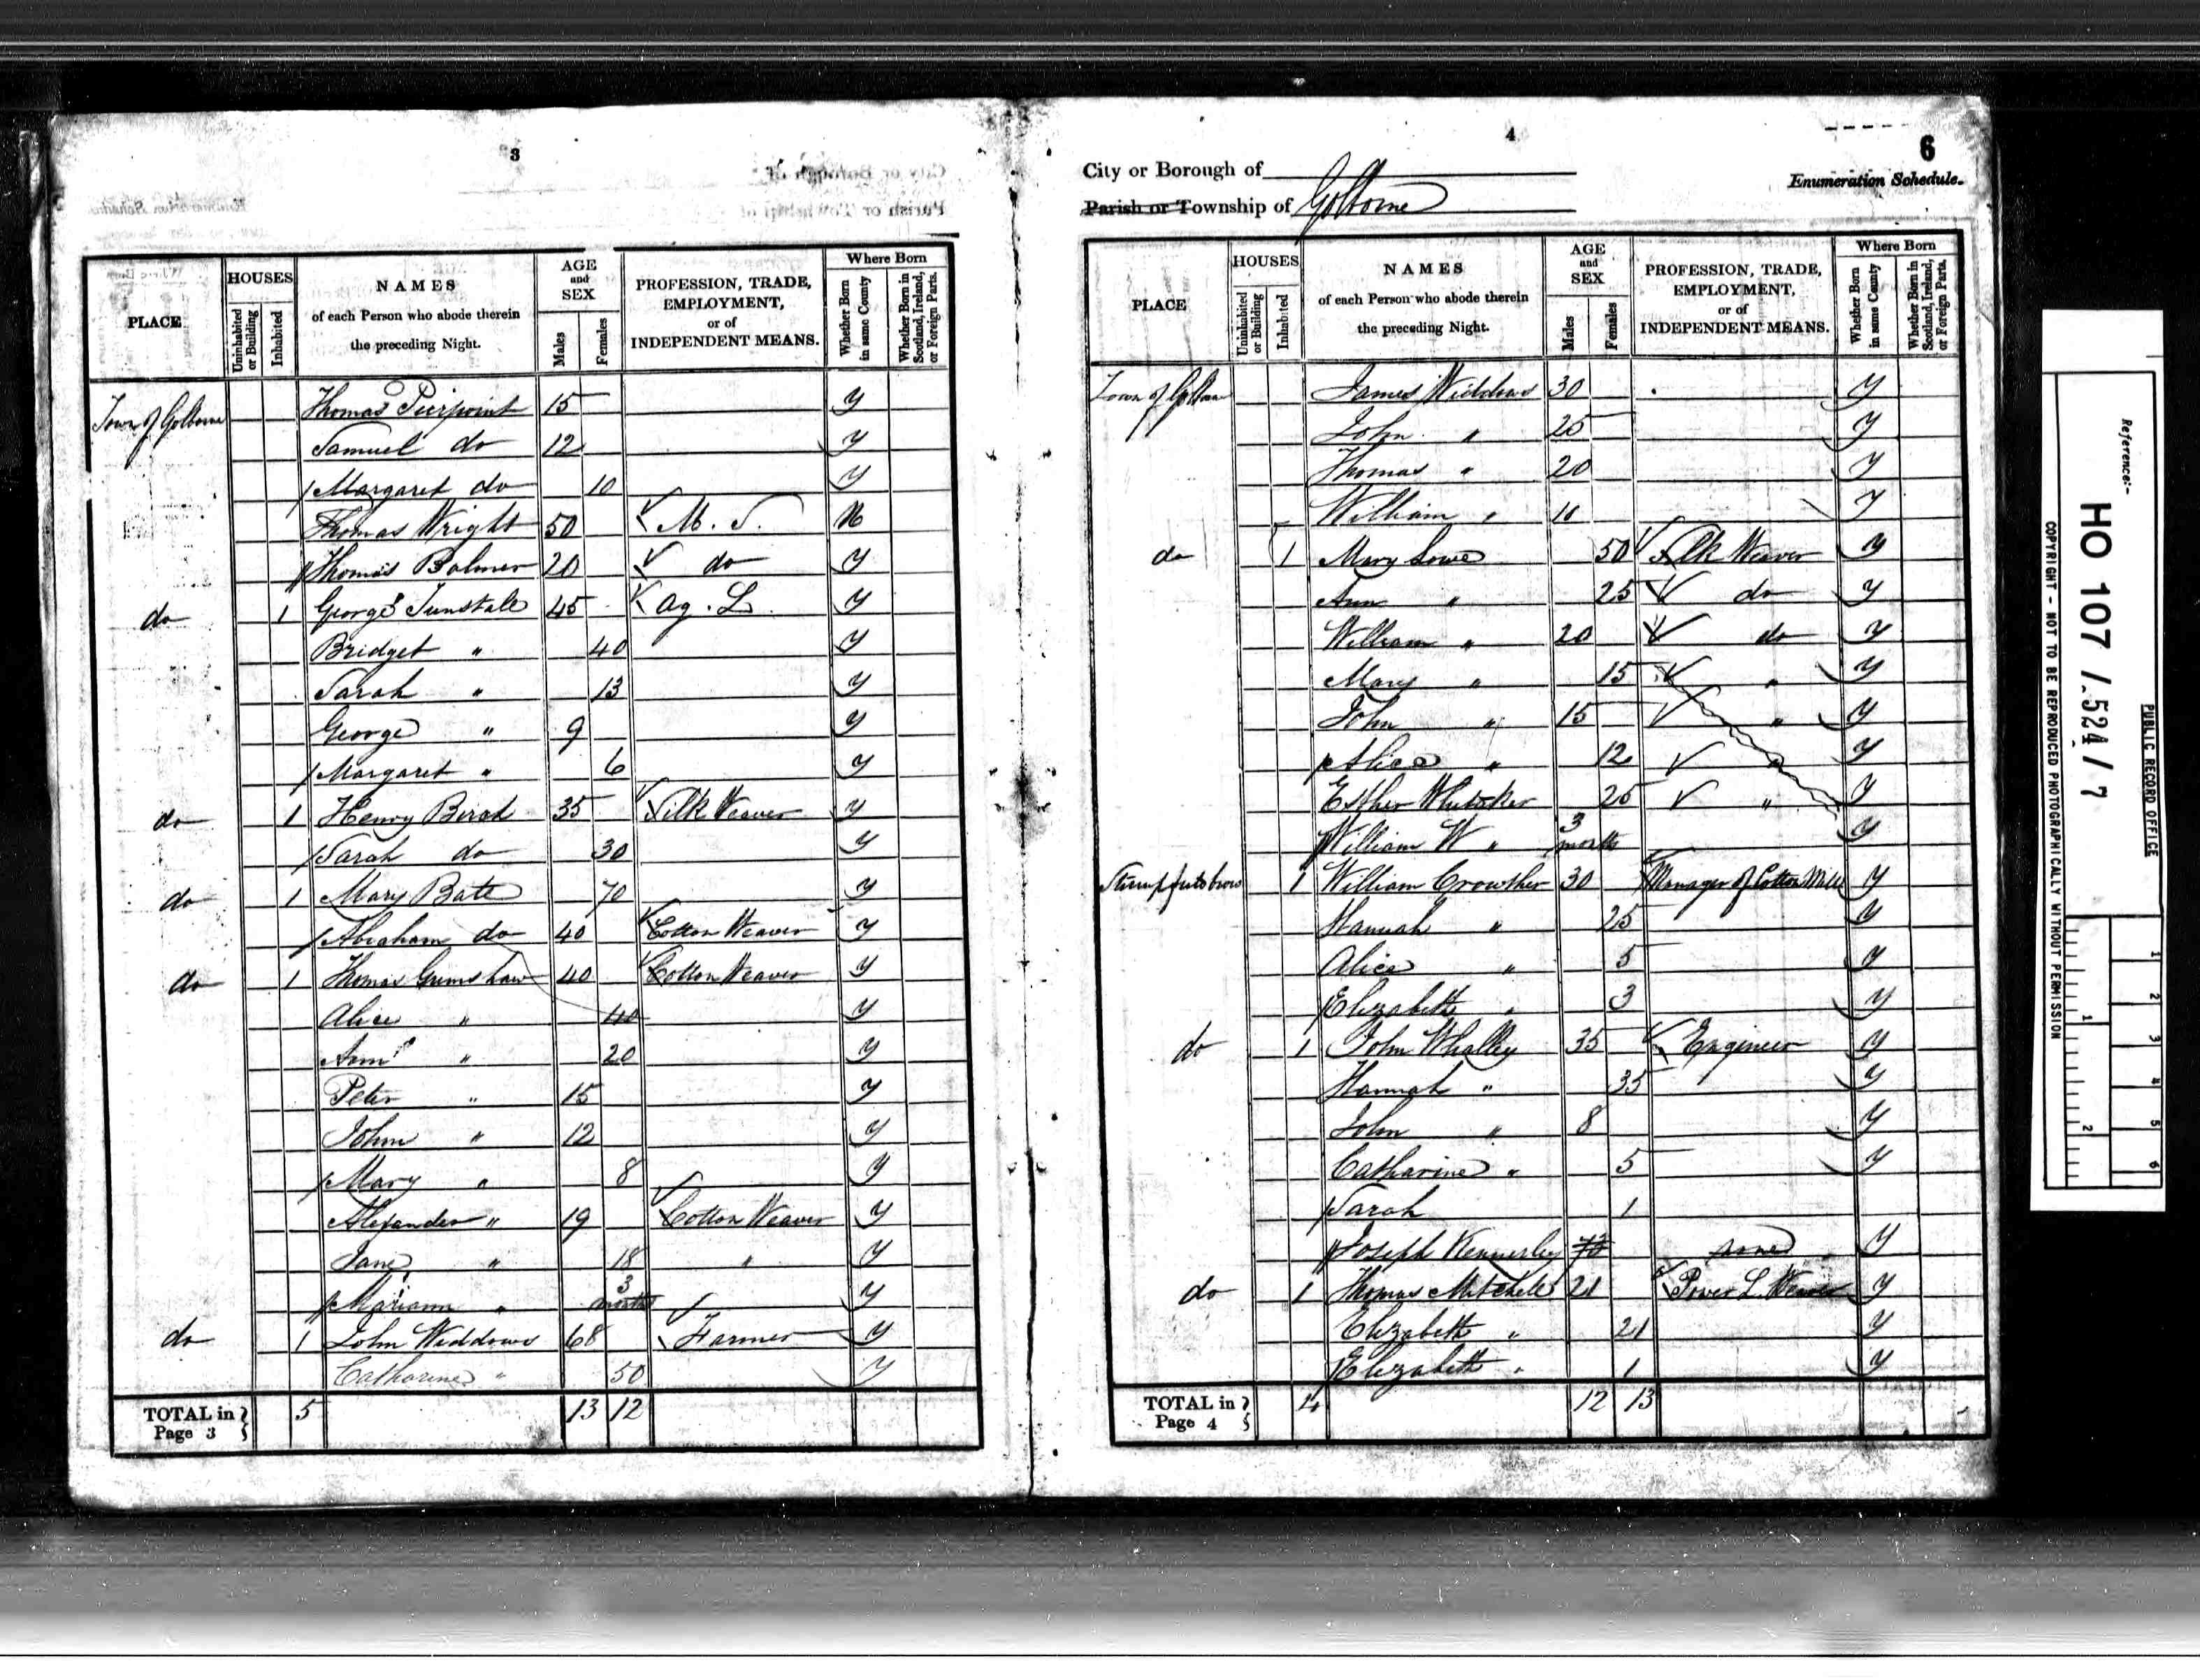 3
PLACE
HOUSES
Uninhabited or Building
Inhabited
NAMES
of each Person who abode therein
the preceding Night.
AGE
and
SEX
Males
Females
PROFESSION, TRADE,
EMPLOYMENT,
or of
INDEPENDENT MEANS.
Where Born
Whether Born in same County
Whether Born in Scotland, Ireland, or Foreign Parts.
Town of Golborne Thomas Pierpoint 15 Y
Samuel do 12 Y
Margaret do 10 Y
Thomas Wright 50 M. S. N
Thomas Bolmer 20 do Y
do 1 George Tunstale 45 Ag. L Y
Bridget " 40 Y
Sarah " 13 Y
George " 9 Y
Margaret " 6 Y
do 1 Henry 35 Silk Weaver Y
Sarah do 30 Y
do 1 Mary Bate 70 Y
Abraham do 40 Cotton Weaver Y
do 1 Thomas Grimshaw 40 Cotton Weaver Y
Alice " 40 Y
" 20 Y
Peter " 15 Y
John " 12 Y
Mary " 8 Y
Alexander " 19 Cotton Weaver Y
Jane " 18 " Y
Mariann " 3 months Y
do 1 John Widdows 68 Farmer Y
Catharine " 50 Y
TOTAL in Page 3 5 13 12
4
6
City or Borough of
Enumeration Schedule.
Parish or Township of Golborne
PLACE
HOUSES
Uninhabited or Building
Inhabited
NAMES
of each Person who abode therein
the preceding Night.
AGE
and
SEX
Males
Females
PROFESSION, TRADE,
EMPLOYMENT,
or of
INDEPENDENT MEANS.
Where Born
Whether Born in same County
Whether Born in Scotland, Ireland, or Foreign Parts.
Town of Golborne James Widdows 30 Y
John " 25 Y
Thomas " 20 Y
William " Y
do 1 Mary Lowe 50 Silk Weaver Y
Ann " 25 do Y
William " 20 do Y
Mary " 15 " Y
John " 15 " Y
Alice " 12 " Y
Esther Whitaker 25 " Y
William W " 3 months Y
1 William Crowther 30 Manager of Cotton Mill Y
Hannah " 25 Y
Alice " 5 Y
Elizabeth " 3 Y
do 1 John Whalley 35 Engineer Y
Hannah " 35 Y
John " 8 Y
Catharine " 5 Y
Sarah 1 Y
Joseph Kennerley none Y
do 1 Thomas Mitchell 21 Power L. Weaver Y
Elizabeth " 21 Y
Elizabeth " 1 Y
TOTAL in Page 4 4 12 13
Reference:-
HO 107 / 524 / 7
PUBLIC RECORD OFFICE
COPYRIGHT - NOT TO BE REPRODUCED PHOTOGRAPHICALLY WITHOUT PERMISSION
1
2
3
4
5
6
1
2